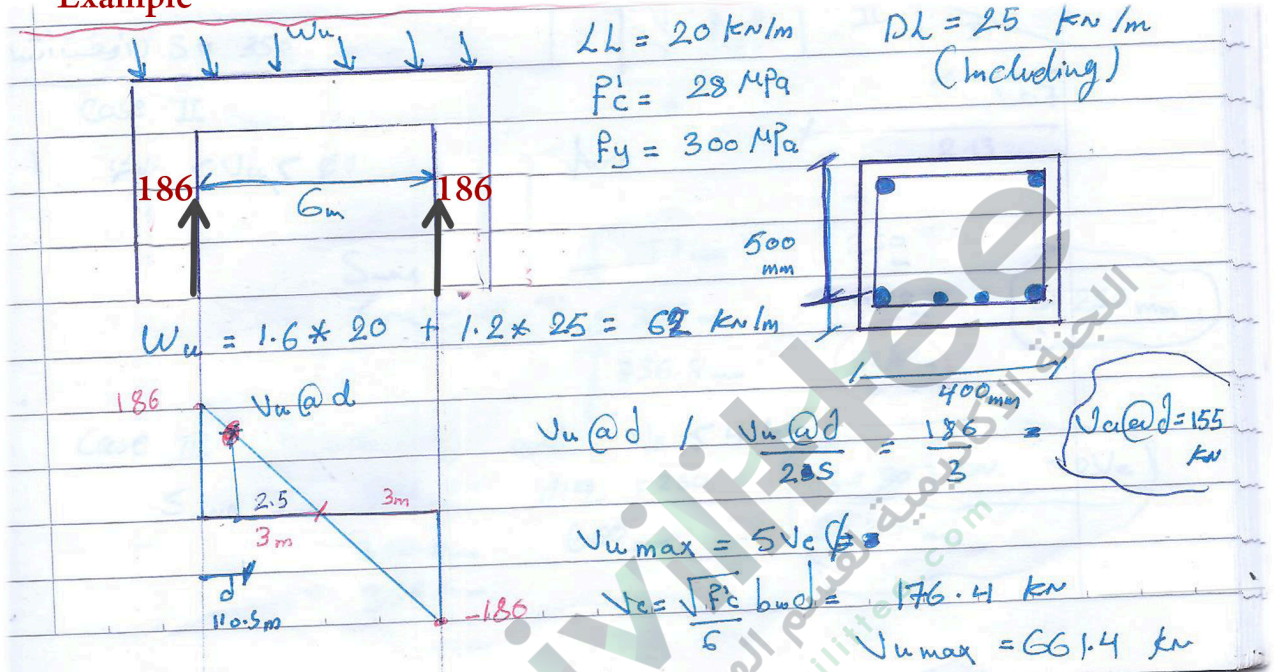 Example
Wu
LL = 20 kN/m
DL = 25 kN/m
(Including)
f'c = 28 MPa
fy = 300 MPa
186
186
6m
500
mm
400mm
Wu = 1.6 * 20 + 1.2 * 25 = 62 kN/m
186
Vu@d
2.5
3m
3m
d
0.5m
-186
Vu@d / Vu@d / 2.5 = 186 / 3 = Vu@d = 155 kN
Vu max = 5Vc ϕ
Vc = √f'c / 6 bwd = 176.4 kN
Vu max = 661.4 kN
اللجنة الأكاديمية لقسم